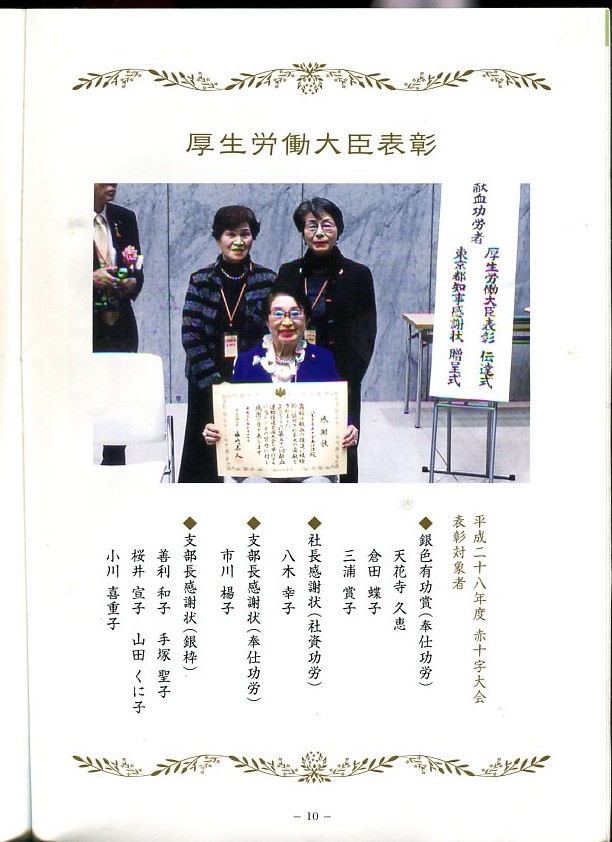 厚生労働大臣表彰
献血功労者
厚生労働大臣表彰 伝達式
東京都知事感謝状 贈呈式
感謝状
平成二十八年度 赤十字大会
表彰対象者
◆銀色有功賞(奉仕功労)
天花寺 久恵
倉田 蝶子
三浦 賞子
◆社長感謝状(社資功労)
八木 幸子
◆支部長感謝状(奉仕功労)
市川 楊子
◆支部長感謝状(銀枠)
善利 和子 手塚 聖子
桜井 宣子 山田 くに子
小川 喜重子
– 10 –